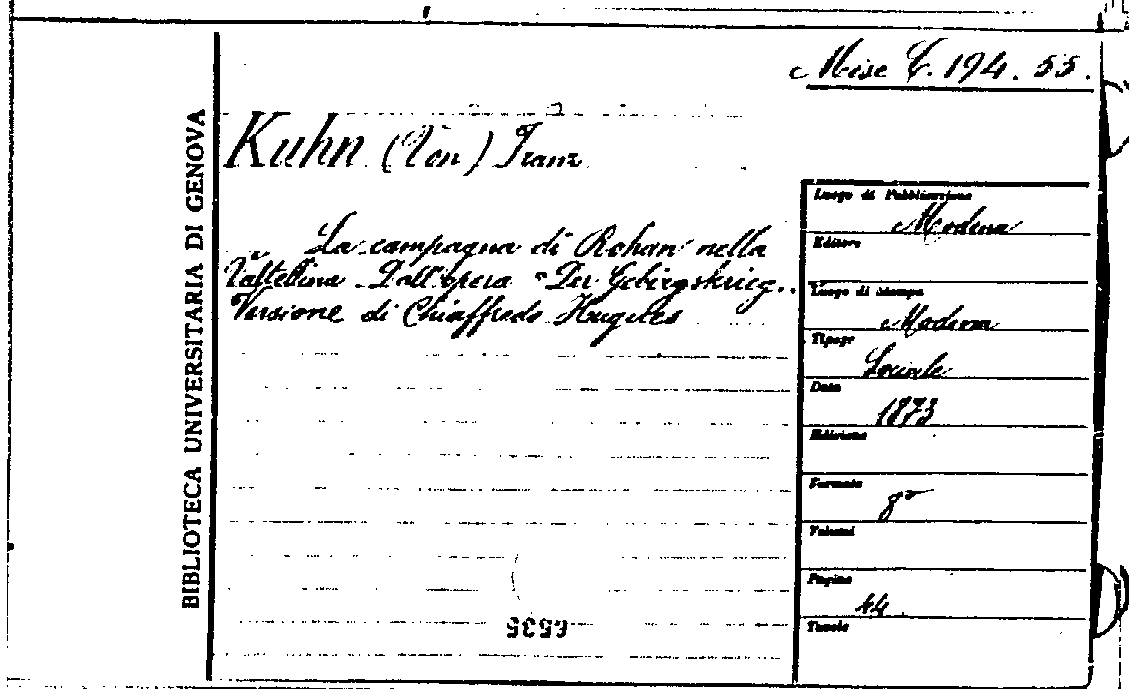 Misc C. 194. 55.
BIBLIOTECA UNIVERSITARIA DI GENOVA
Kuhn (Von) Franz
La campagna di Rohan nella
Valtellina. Dall'opera "Der Gebirgskrieg..
Versione di Chiaffredo Hugues
Luogo di Pubblicazione
Modena
Editore
Luogo di stampa
Modena
Tipogr
Sociale
Data
1873
Edizione
Formato
8°
Volumi
Pagine
44
Tavole